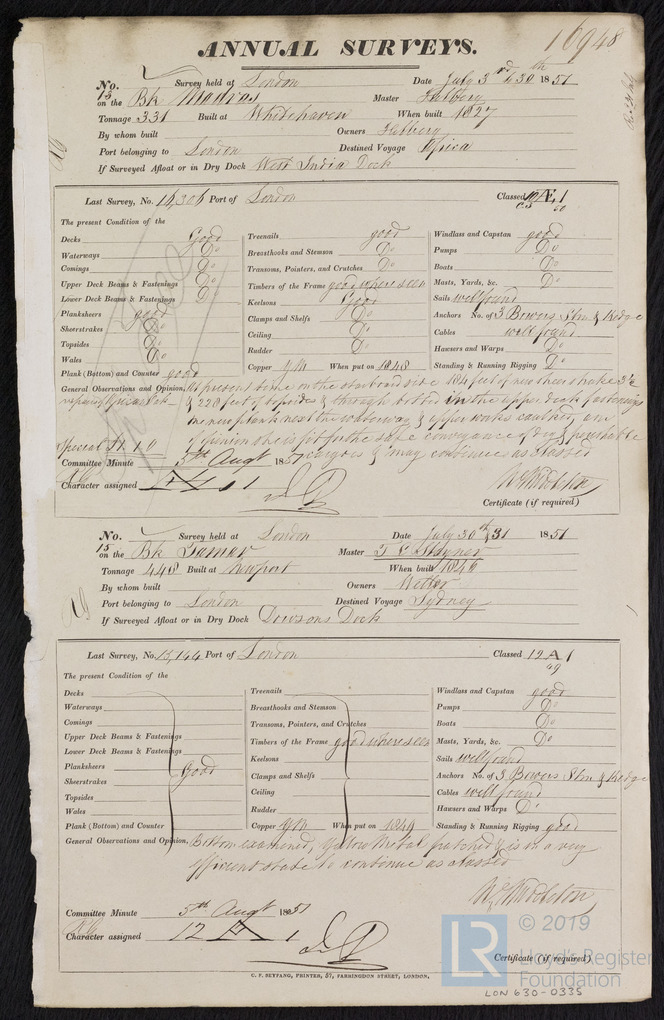 16948
ANNUAL SURVEYS.
No. Survey held at London Date July 3rd & 30th 1851
15 on the Bk Madras Master
Tonnage 331 Built at Whitehaven When built 1827
By whom built Owners
Port belonging to London Destined Voyage Africa
If Surveyed Afloat or in Dry Dock West India Dock
Last Survey, No. Port of London Classed Æ 1
The present Condition of the
Decks Good Treenails good Windlass and Capstan good
Waterways Do Breasthooks and Stemson Do Pumps Do
Comings Do Transoms, Pointers, and Crutches Do Boats Do
Upper Deck Beams & Fastenings Do Timbers of the Frame good where seen Masts, Yards, &c. Do
Lower Deck Beams & Fastenings Do Keelsons Good Sails well found
Planksheers good Clamps and Shelfs Do Anchors No. of 3 Bowers Stm & Kedge
Sheerstrakes Do Ceiling Do Cables well found
Topsides Do Rudder Do Hawsers and Warps Do
Wales Do Copper YM When put on 1848 Standing & Running Rigging Do
Plank (Bottom) and Counter good
General Observations and Opinion, At present some on the starboard side 184 feet of new sheerstrake
& 228 feet of topsides & through bolted in the upper deck fastenings
new plank next the waterway & upper works caulked, am
of opinion she is fit for the safe conveyance of dry & perishable
cargoes & may continue as classed
Special
Committee Minute 5th Augt 1851
Character assigned Æ 1
Certificate (if required)
No. Survey held at London Date July 30th & 31 1851
15 on the Bk Tamar Master
Tonnage 448 Built at Newport When built 1846
By whom built Owners
Port belonging to London Destined Voyage Sydney
If Surveyed Afloat or in Dry Dock Dowsons Dock
Last Survey, No. 13,144 Port of London Classed 12 A 1
49
The present Condition of the
Decks Treenails Windlass and Capstan good
Waterways Breasthooks and Stemson Pumps Do
Comings Transoms, Pointers, and Crutches Boats Do
Upper Deck Beams & Fastenings Timbers of the Frame good where seen Masts, Yards, &c. Do
Lower Deck Beams & Fastenings Keelsons Sails well found
Planksheers Good Clamps and Shelfs Anchors No. of 3 Bowers Stm & Kedge
Sheerstrakes Ceiling Cables well found
Topsides Rudder Hawsers and Warps Do
Wales Copper YM When put on 1849 Standing & Running Rigging good
Plank (Bottom) and Counter
General Observations and Opinion, Bottom examined, Yellow Metal patched & is in a very
efficient state to continue as classed
Committee Minute 5th Augt 1851
Character assigned 12 A 1
Certificate (if required)
C. F. SEYFANG, PRINTER, 57, FARRINGDON STREET, LONDON,
LR © 2019
Lloyd's Register
Foundation
LON 630-0335